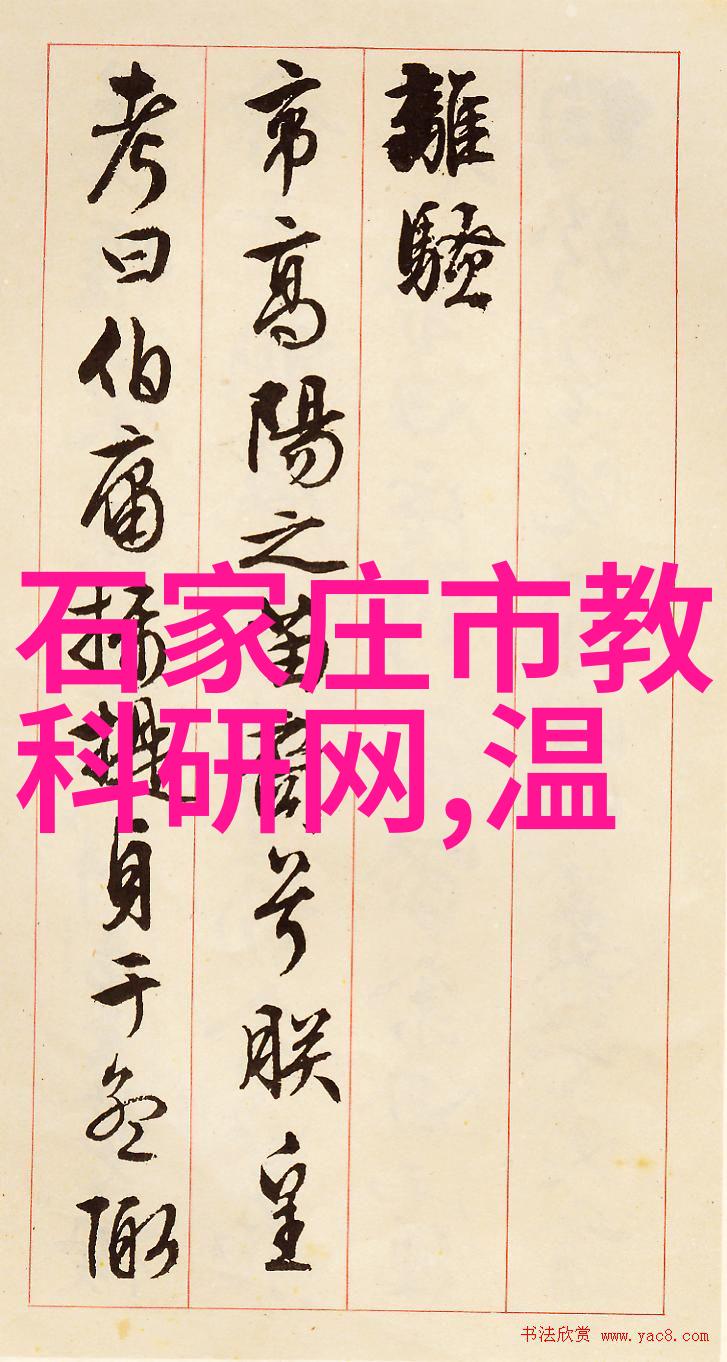 離騷
帝高陽之苗裔兮朕皇
考曰伯庸攝提貞于孟陬
石家庄市教
科研网,温
书法欣赏 www.yac8.com